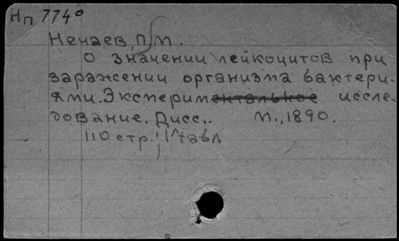 Нп 7740
Нечаев, П.М.
О значении лейкоцитов при
заражении организма бактери-
ями. Экспериментальное иссле-
дование. Дисс.. М., 1890.
110 стр. 1 табл